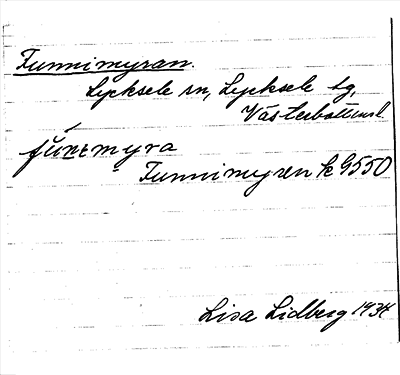 Funnimyran.
Lycksele sn, Lycksele tg,
Västerbottens l.
Funnimyren k 9550
Lisa Lidberg 1934